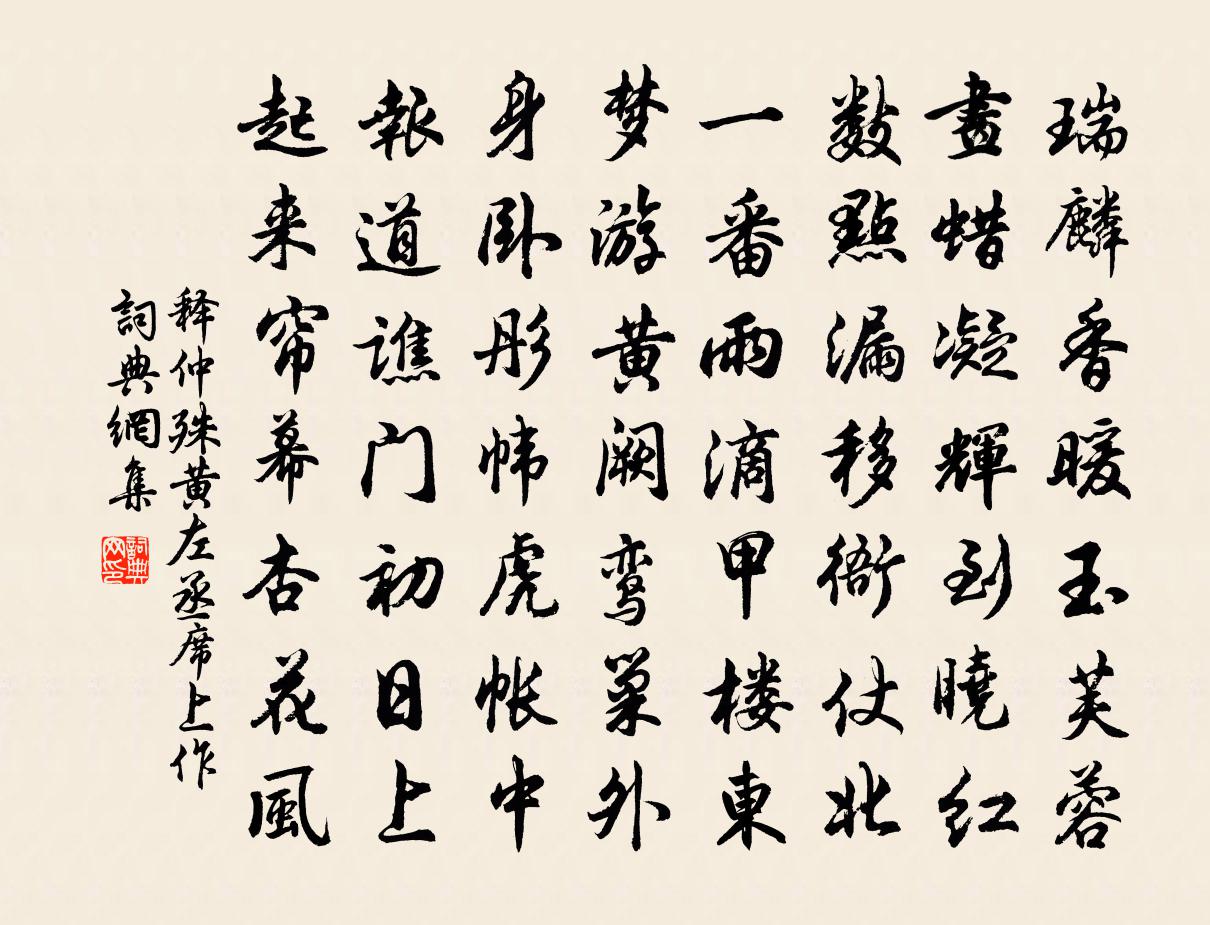 瑞麟香暖玉芙蓉
畫蜡凝輝到曉红
數點漏移衙仗北
一番雨滴甲楼東
梦游黄阙鸾巢外
身卧彤帏虎帐中
報道譙门初日上
起来帘幕杏花風
释仲殊黄左丞席上作
詞典網集
詞典网印